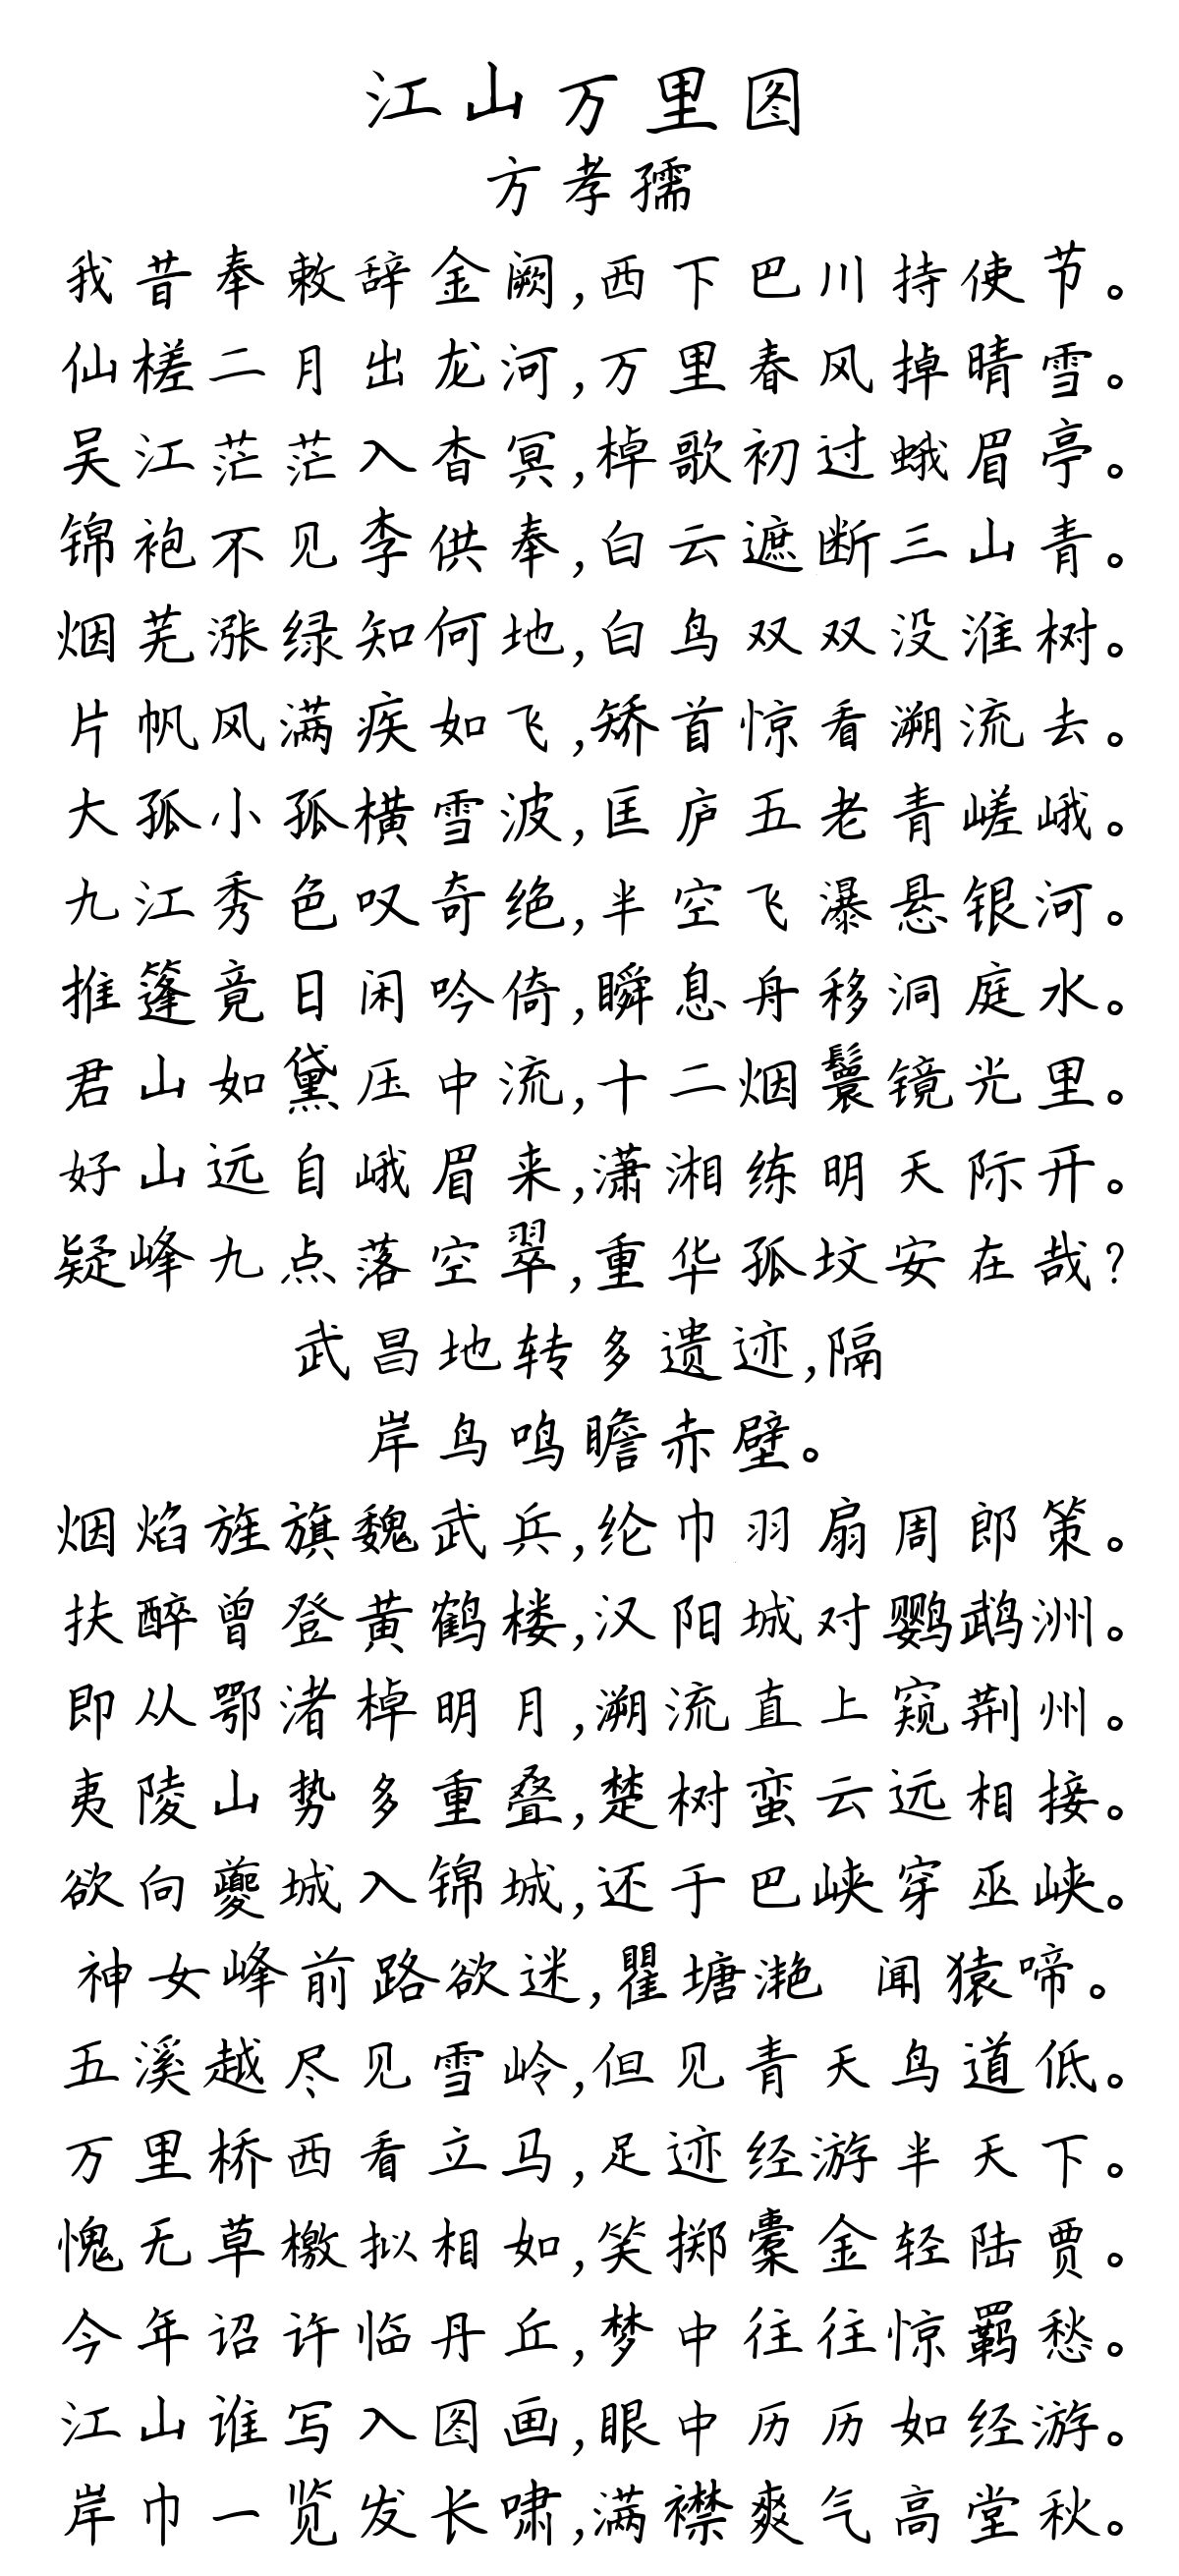 江山万里图
方孝孺
我昔奉敕辞金阙,西下巴川持使节。
仙槎二月出龙河,万里春风掉晴雪。
吴江茫茫入杳冥,棹歌初过蛾眉亭。
锦袍不见李供奉,白云遮断三山青。
烟芜涨绿知何地,白鸟双双没淮树。
片帆风满疾如飞,矫首惊看溯流去。
大孤小孤横雪波,匡庐五老青嵯峨。
九江秀色叹奇绝,半空飞瀑悬银河。
推篷竟日闲吟倚,瞬息舟移洞庭水。
君山如黛压中流,十二烟鬟镜光里。
好山远自峨眉来,潇湘练明天际开。
疑峰九点落空翠,重华孤坟安在哉?
武昌地转多遗迹,隔
岸鸟鸣瞻赤壁。
烟焰旌旗魏武兵,纶巾羽扇周郎策。
扶醉曾登黄鹤楼,汉阳城对鹦鹉洲。
即从鄂渚棹明月,溯流直上窥荆州。
夷陵山势多重叠,楚树蛮云远相接。
欲向夔城入锦城,还于巴峡穿巫峡。
神女峰前路欲迷,瞿塘滟 闻猿啼。
五溪越尽见雪岭,但见青天鸟道低。
万里桥西看立马,足迹经游半天下。
愧无草檄拟相如,笑掷橐金轻陆贾。
今年诏许临丹丘,梦中往往惊羁愁。
江山谁写入图画,眼中历历如经游。
岸巾一览发长啸,满襟爽气高堂秋。